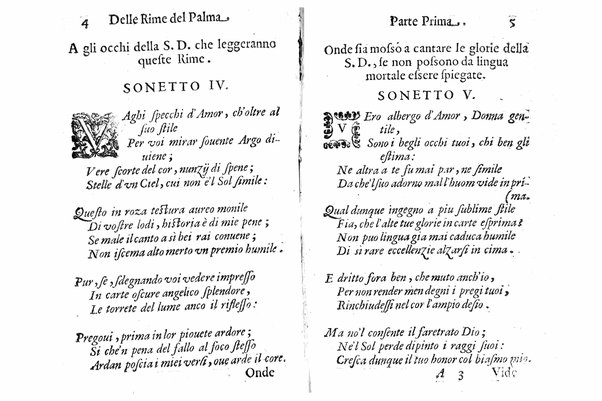 4 Delle Rime del Palma
A gli occhi della S. D. che leggeranno
queste Rime.
SONETTO IV.
VAghi specchi d'Amor, ch'oltre al
suo stile
Per voi mirar souente Argo di-
uiene;
Vere scorte del cor, nunzij di spene;
Stelle d'vn Ciel, cui non è'l Sol simile:
Questo in roza testura aureo monile
Di vostre lodi, historia è di mie pene;
Se male il canto a sì bei rai conuene;
Non iscema alto merto vn premio humile.
Pur, se, sdegnando voi vedere impresso
In carte oscure angelico splendore,
Le torrete del lume anco il riflesso:
Pregoui, prima in lor piouete ardore;
Si che'n pena del fallo al foco stesso
Ardan poscia i miei versi, oue arde il core.
Onde
Parte Prima. 5
Onde sia mosso a cantare le glorie della
S. D, se non possono da lingua
mortale essere spiegate.
SONETTO V.
VEro albergo d'Amor, Donna gen-
tile,
Sono i begli occhi tuoi, chi ben gli
estima:
Ne altra a te fu mai par, ne simile
Da che'l suo adorno mal l'huom vide in pri-
(ma.
Qual dunque ingegno a piu sublime stile
Fia, che l'alte tue glorie in carte esprima?
Non puo lingua già mai caduca humile
Di sì rare eccellenzie alzarsi in cima.
E dritto fora ben, che muto anch'io,
Per non render men degni i pregi tuoi,
Rinchiudessi nel cor l'ampio desio.
Ma no'l consente il faretrato Dio;
Ne'l Sol perde dipinto i raggi suoi:
Cresca dunque il tuo honor col biasmo mio.
A 3 Vide